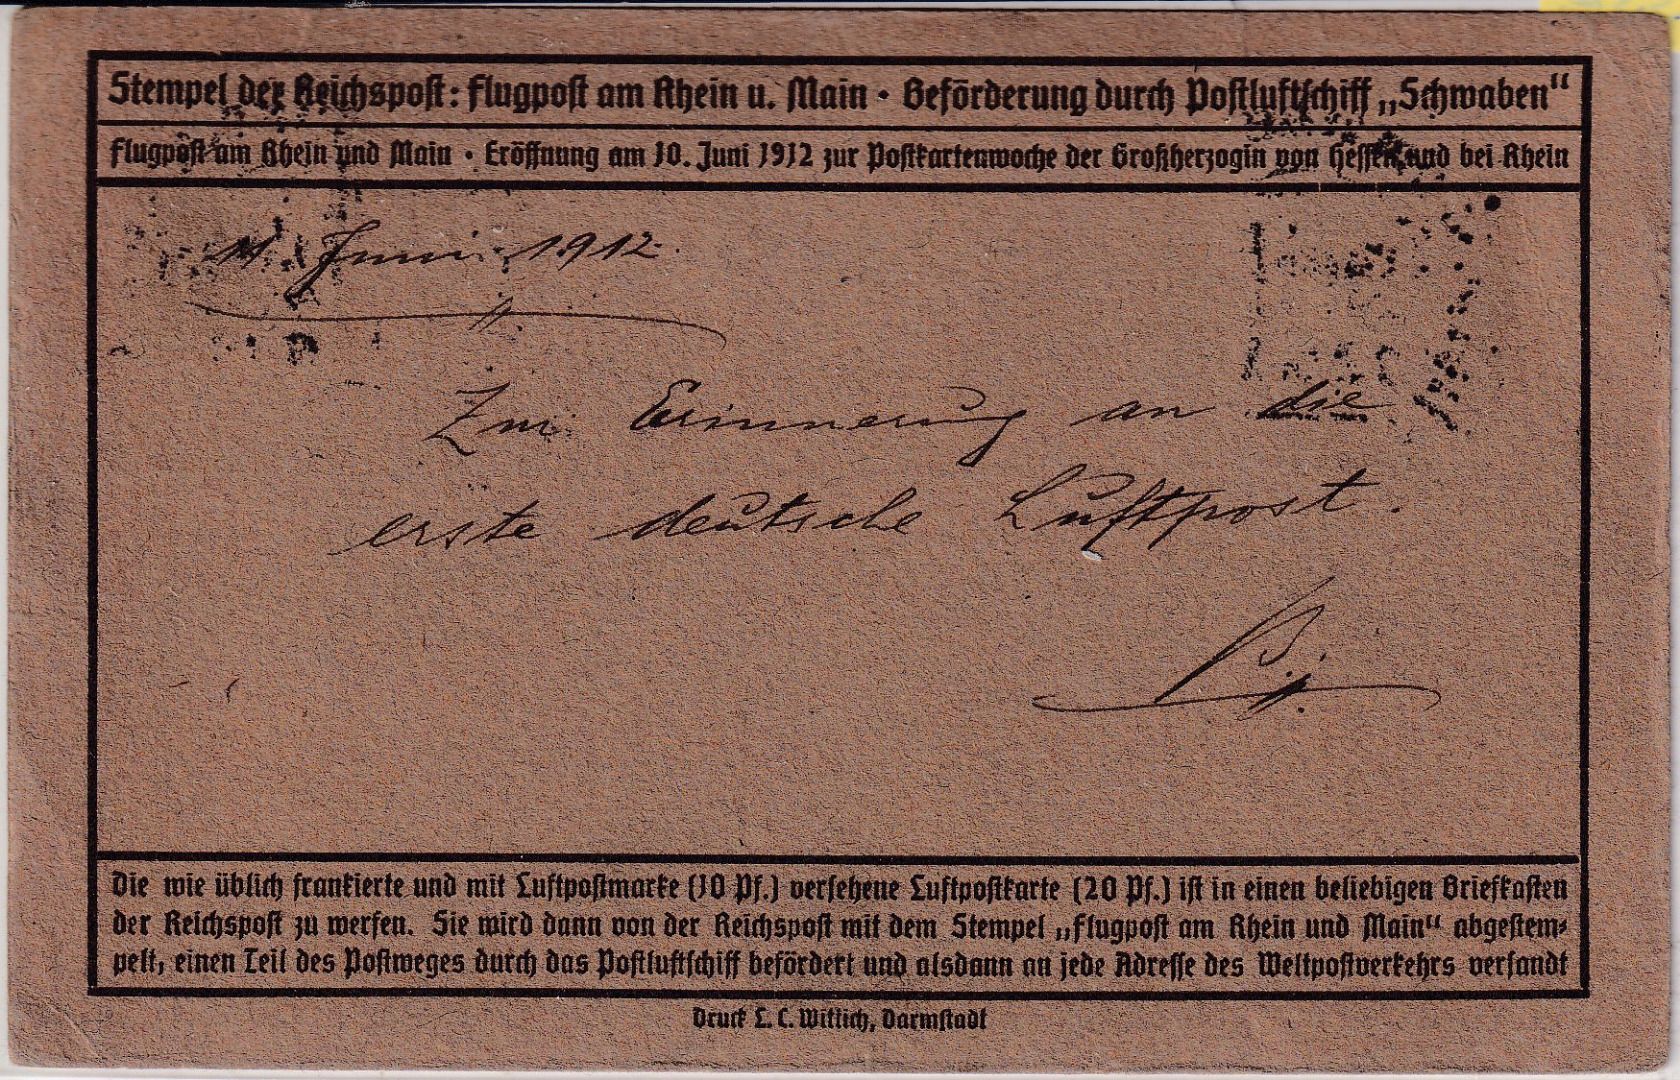 Stempel der Reichspost: Flugpost am Rhein u. Main · Beförderung durch Postluftschiff „Schwaben“
Flugpost am Rhein und Main · Eröffnung am 10. Juni 1912 zur Postkartenwoche der Großherzogin von Hessen und bei Rhein
11. Juni 1912.
Zur Erinnerung an die
erste deutsche Luftpost.
Die wie üblich frankierte und mit Luftpostmarke (10 Pf.) versehene Luftpostkarte (20 Pf.) ist in einen beliebigen Briefkasten
der Reichspost zu werfen. Sie wird dann von der Reichspost mit dem Stempel „Flugpost am Rhein und Main“ abgestem-
pelt, einen Teil des Postweges durch das Postluftschiff befördert und alsdann an jede Adresse des Weltpostverkehrs versandt
Druck L. C. Wittich, Darmstadt